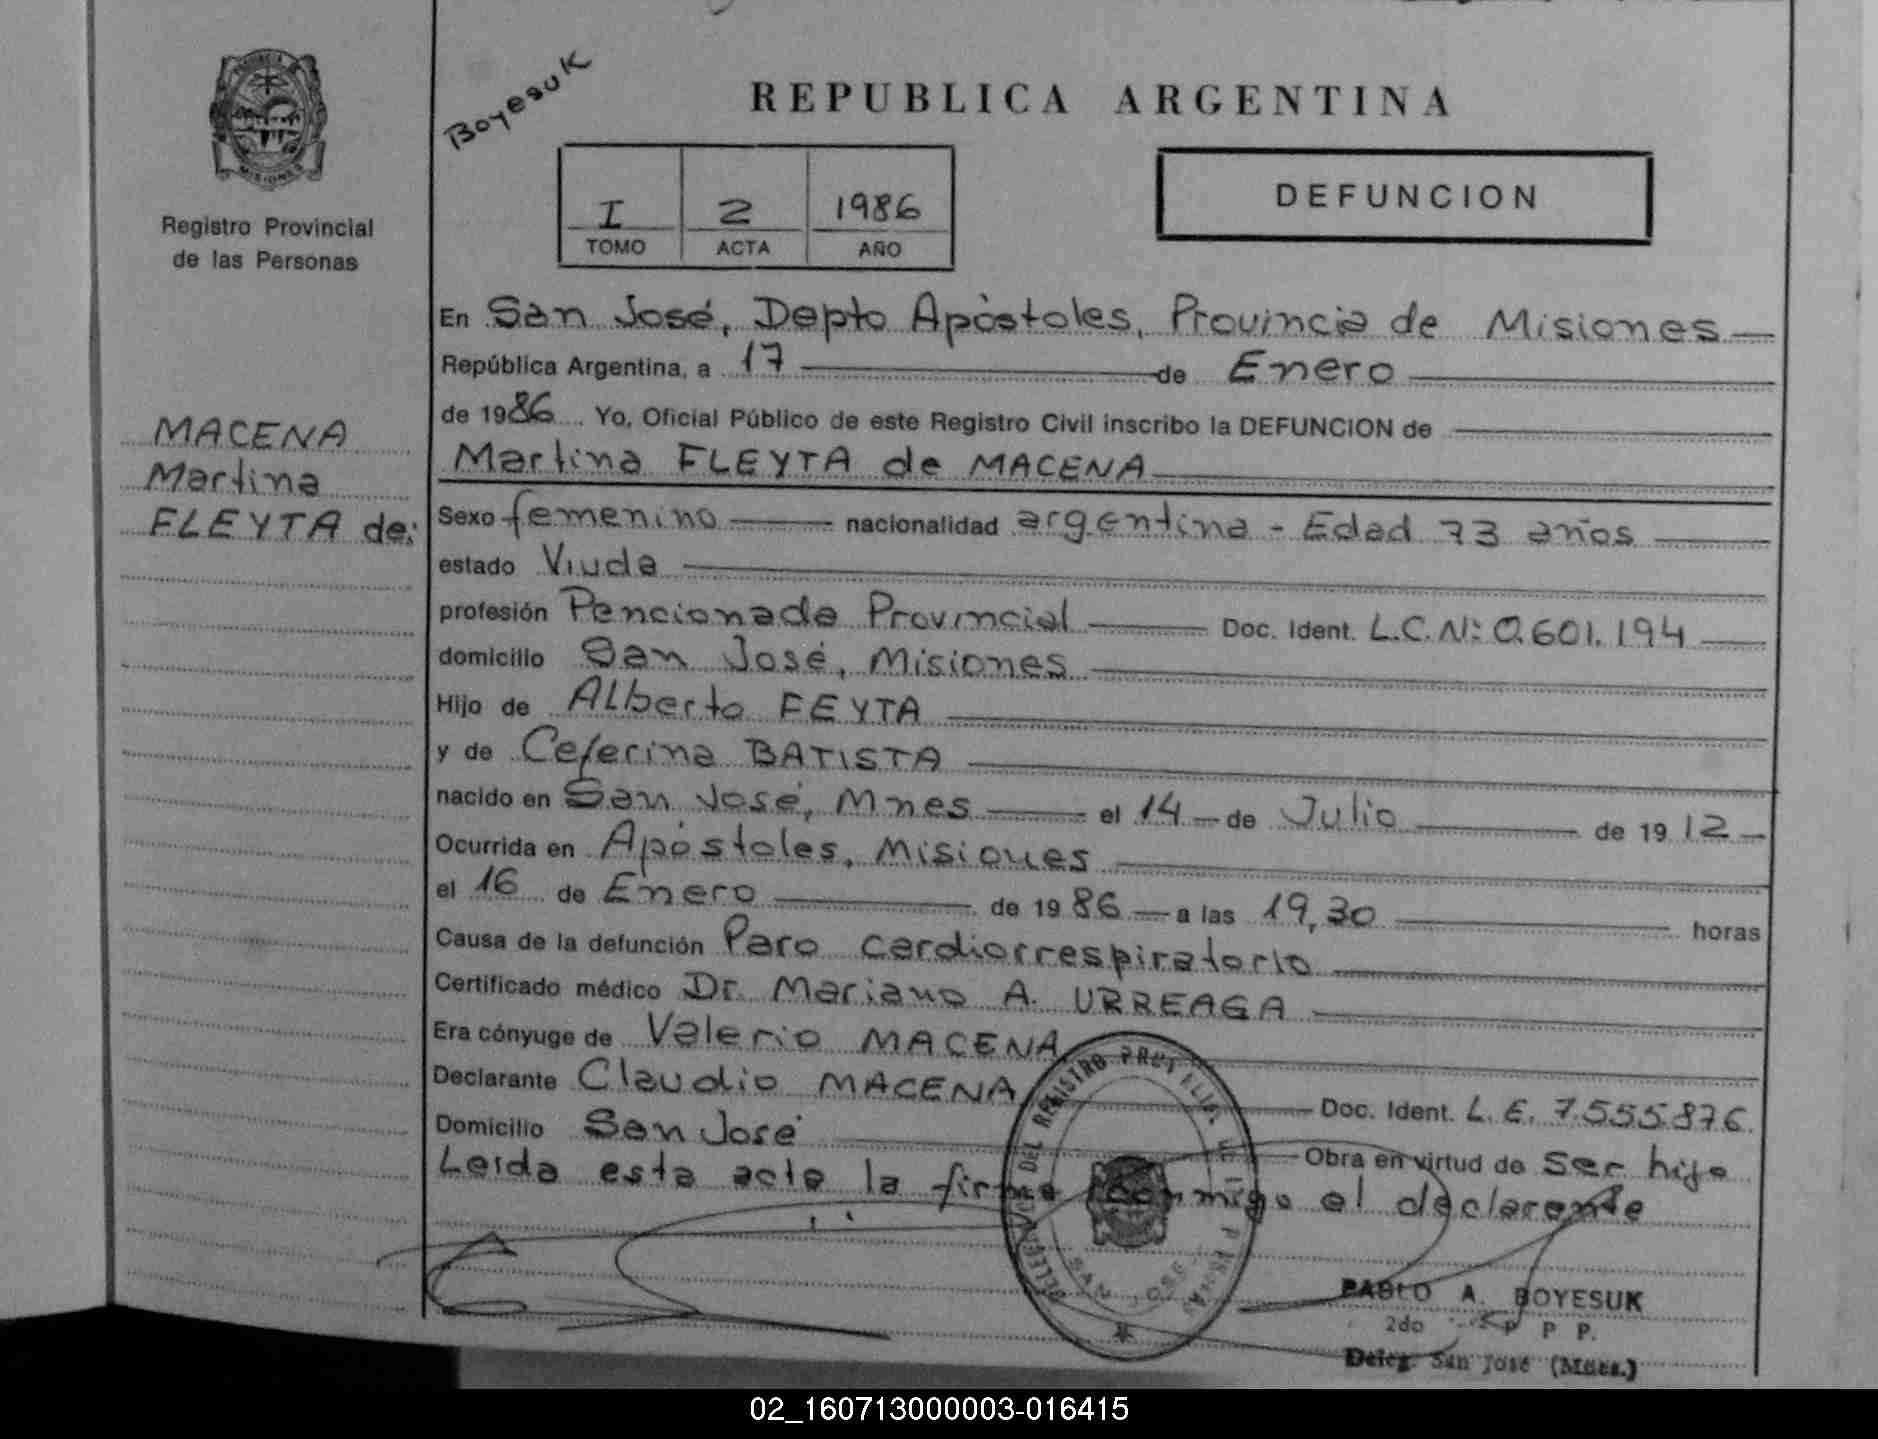 PROVINCIA
MISIONES
Registro Provincial
de las Personas
MACENA
Martina
FLEYTA de:
Boyesuk
REPUBLICA ARGENTINA
I 2 1986
TOMO ACTA AÑO
DEFUNCION
En San José, Depto Apóstoles, Provincia de Misiones
República Argentina, a 17 de Enero
de 1986 Yo, Oficial Público de este Registro Civil inscribo la DEFUNCION de
Martina FLEYTA de MACENA
Sexo femenino nacionalidad argentina - Edad 73 años
estado Viuda
profesión Pencionada Provincial Doc. Ident. L.C.N: 0.601.194
domicilio San José, Misiones
Hijo de Alberto FEYTA
y de Ceferina BATISTA
nacido en San José, Mnes el 14 de Julio de 1912
Ocurrida en Apóstoles, Misiones
el 16 de Enero de 1986 a las 19,30 horas
Causa de la defunción Paro cardiorrespiratorio
Certificado médico Dr. Mariano A. URREAGA
Era cónyuge de Valerio MACENA
Declarante Claudio MACENA Doc. Ident. L.E. 7.555.876.
Domicilio San José Obra en virtud de Ser hijo
Leida esta acta la firma conmigo el declarante
DEL REGISTRO
SAN JOSE
PABLO A. BOYESUK
2do P P.
Deleg. San José (Mnes.)
02_160713000003-016415